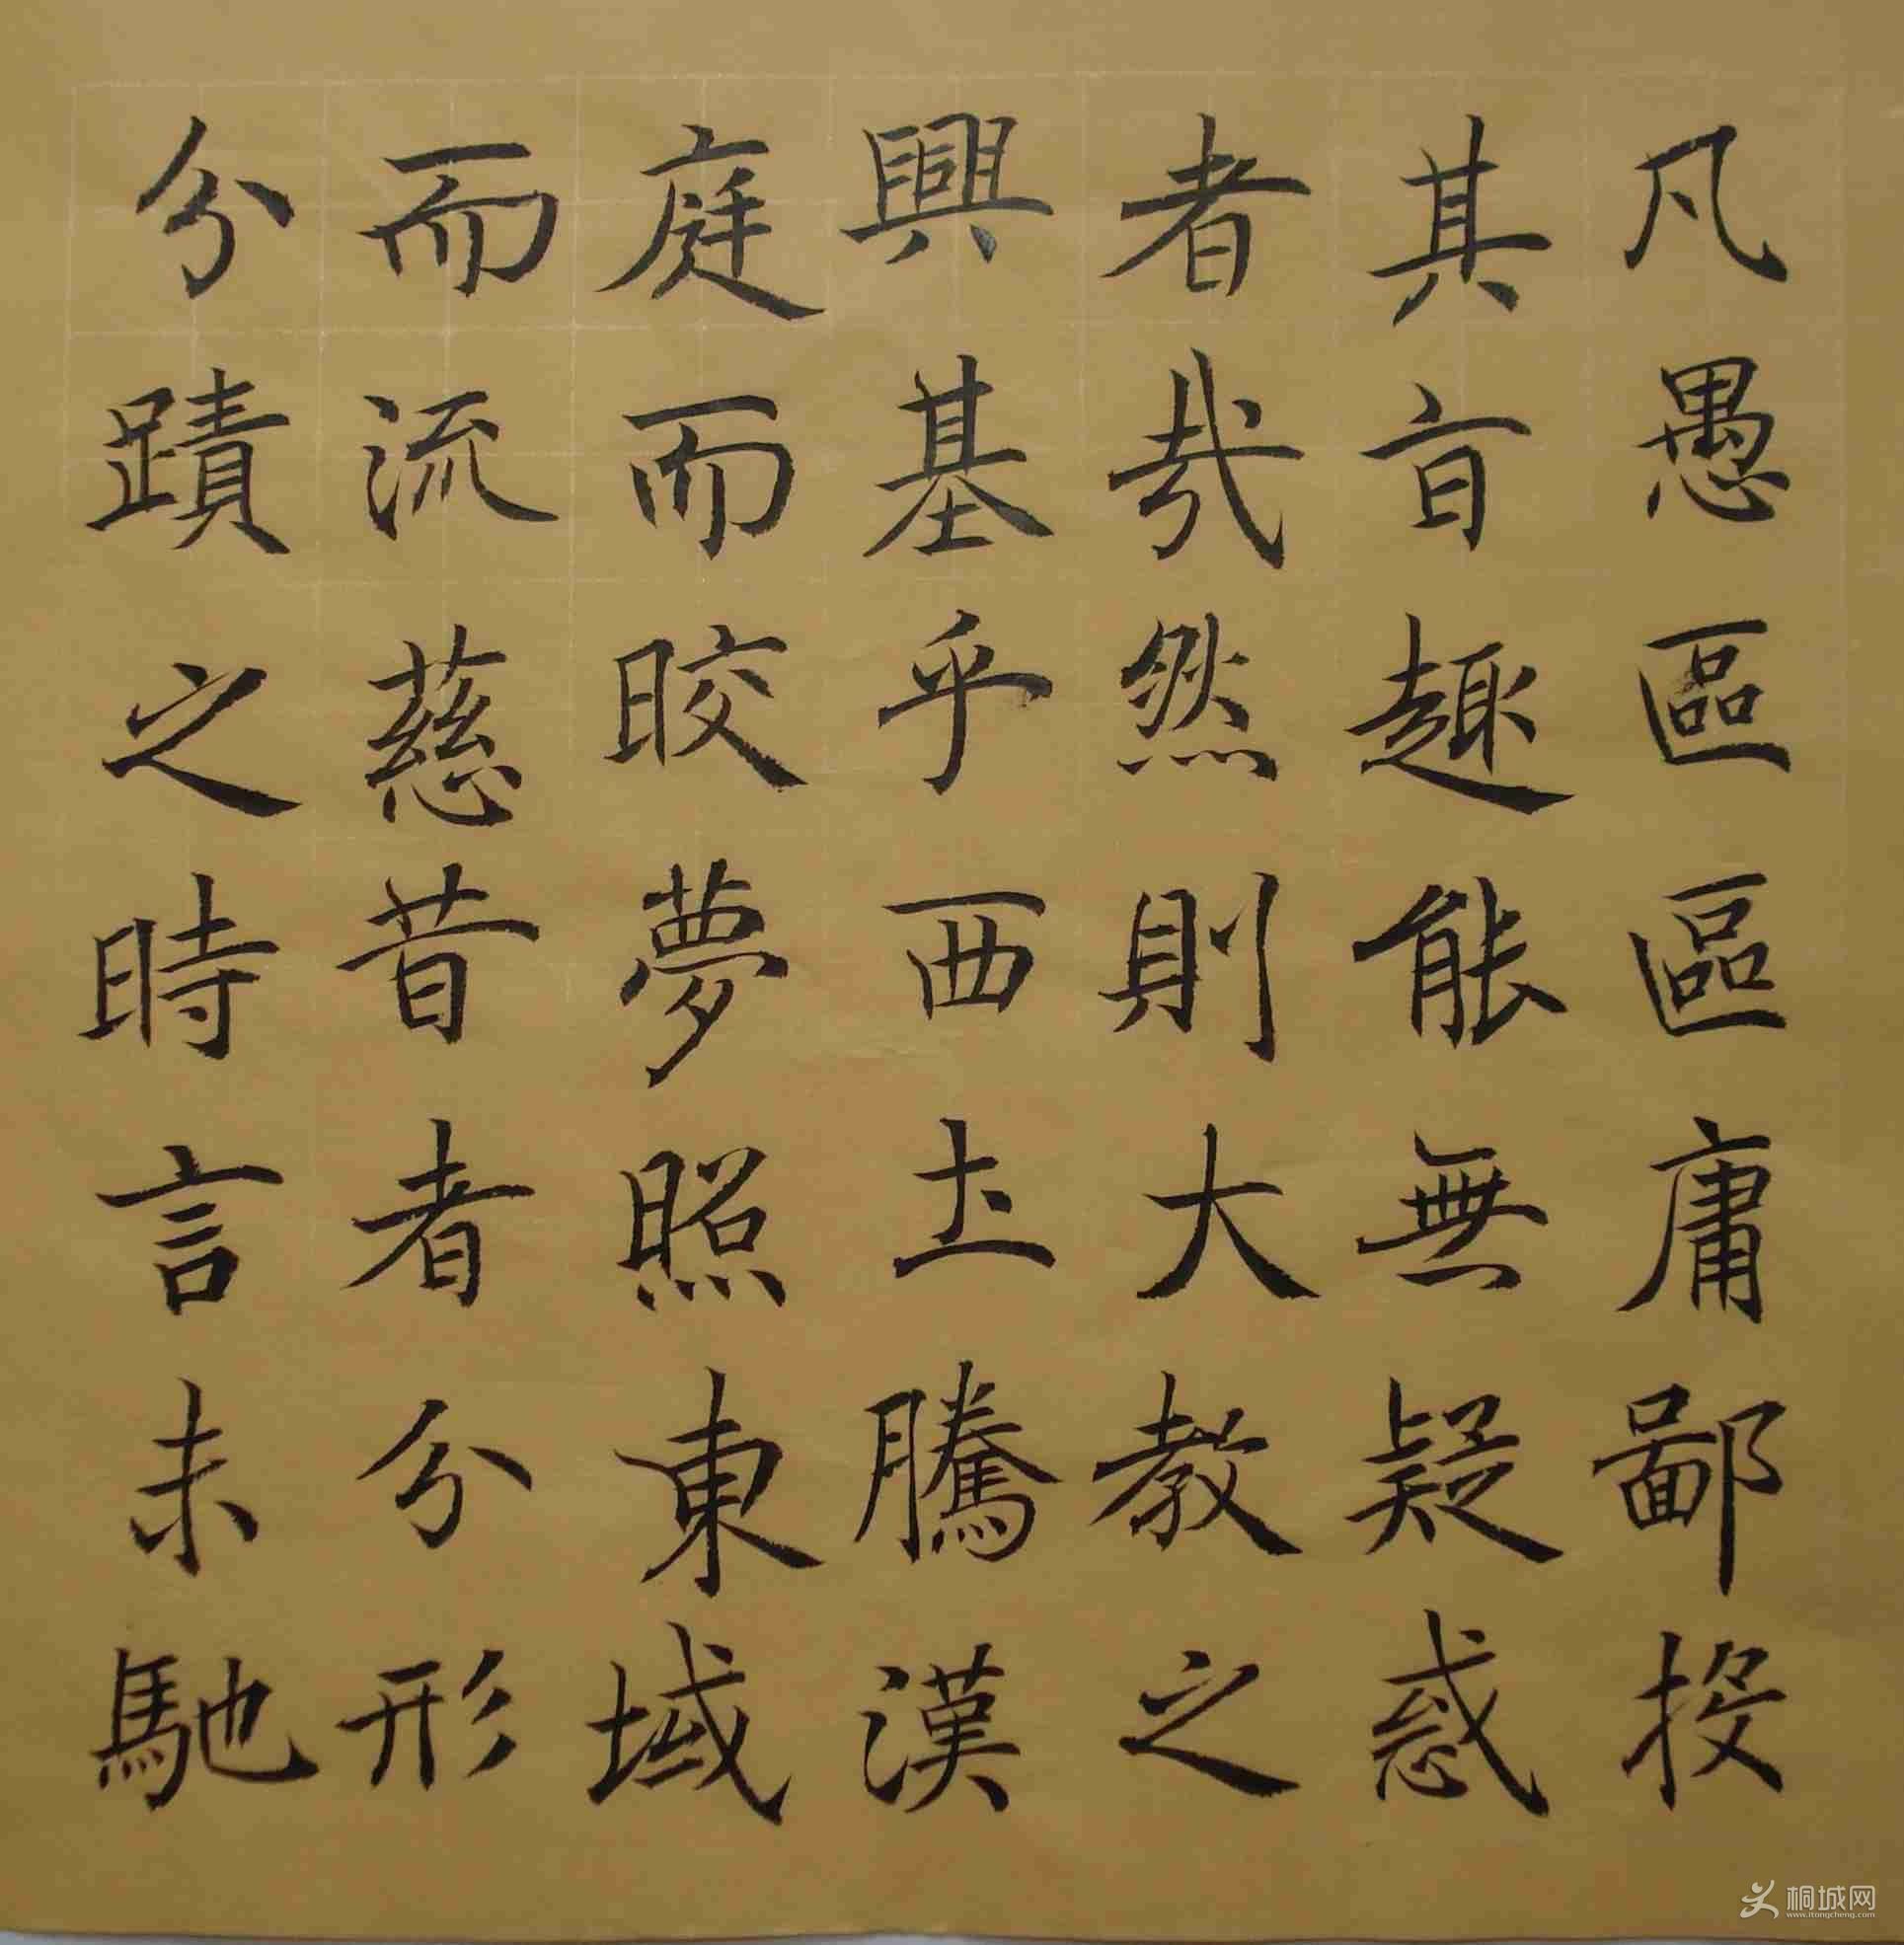 凡愚區區庸鄙投
其旨趣能無疑惑
者哉然則大教之
興基乎西土騰漢
庭而皎夢照東域
而流慈昔者分形
分蹟之時言未馳
桐城网
www.itongcheng.com